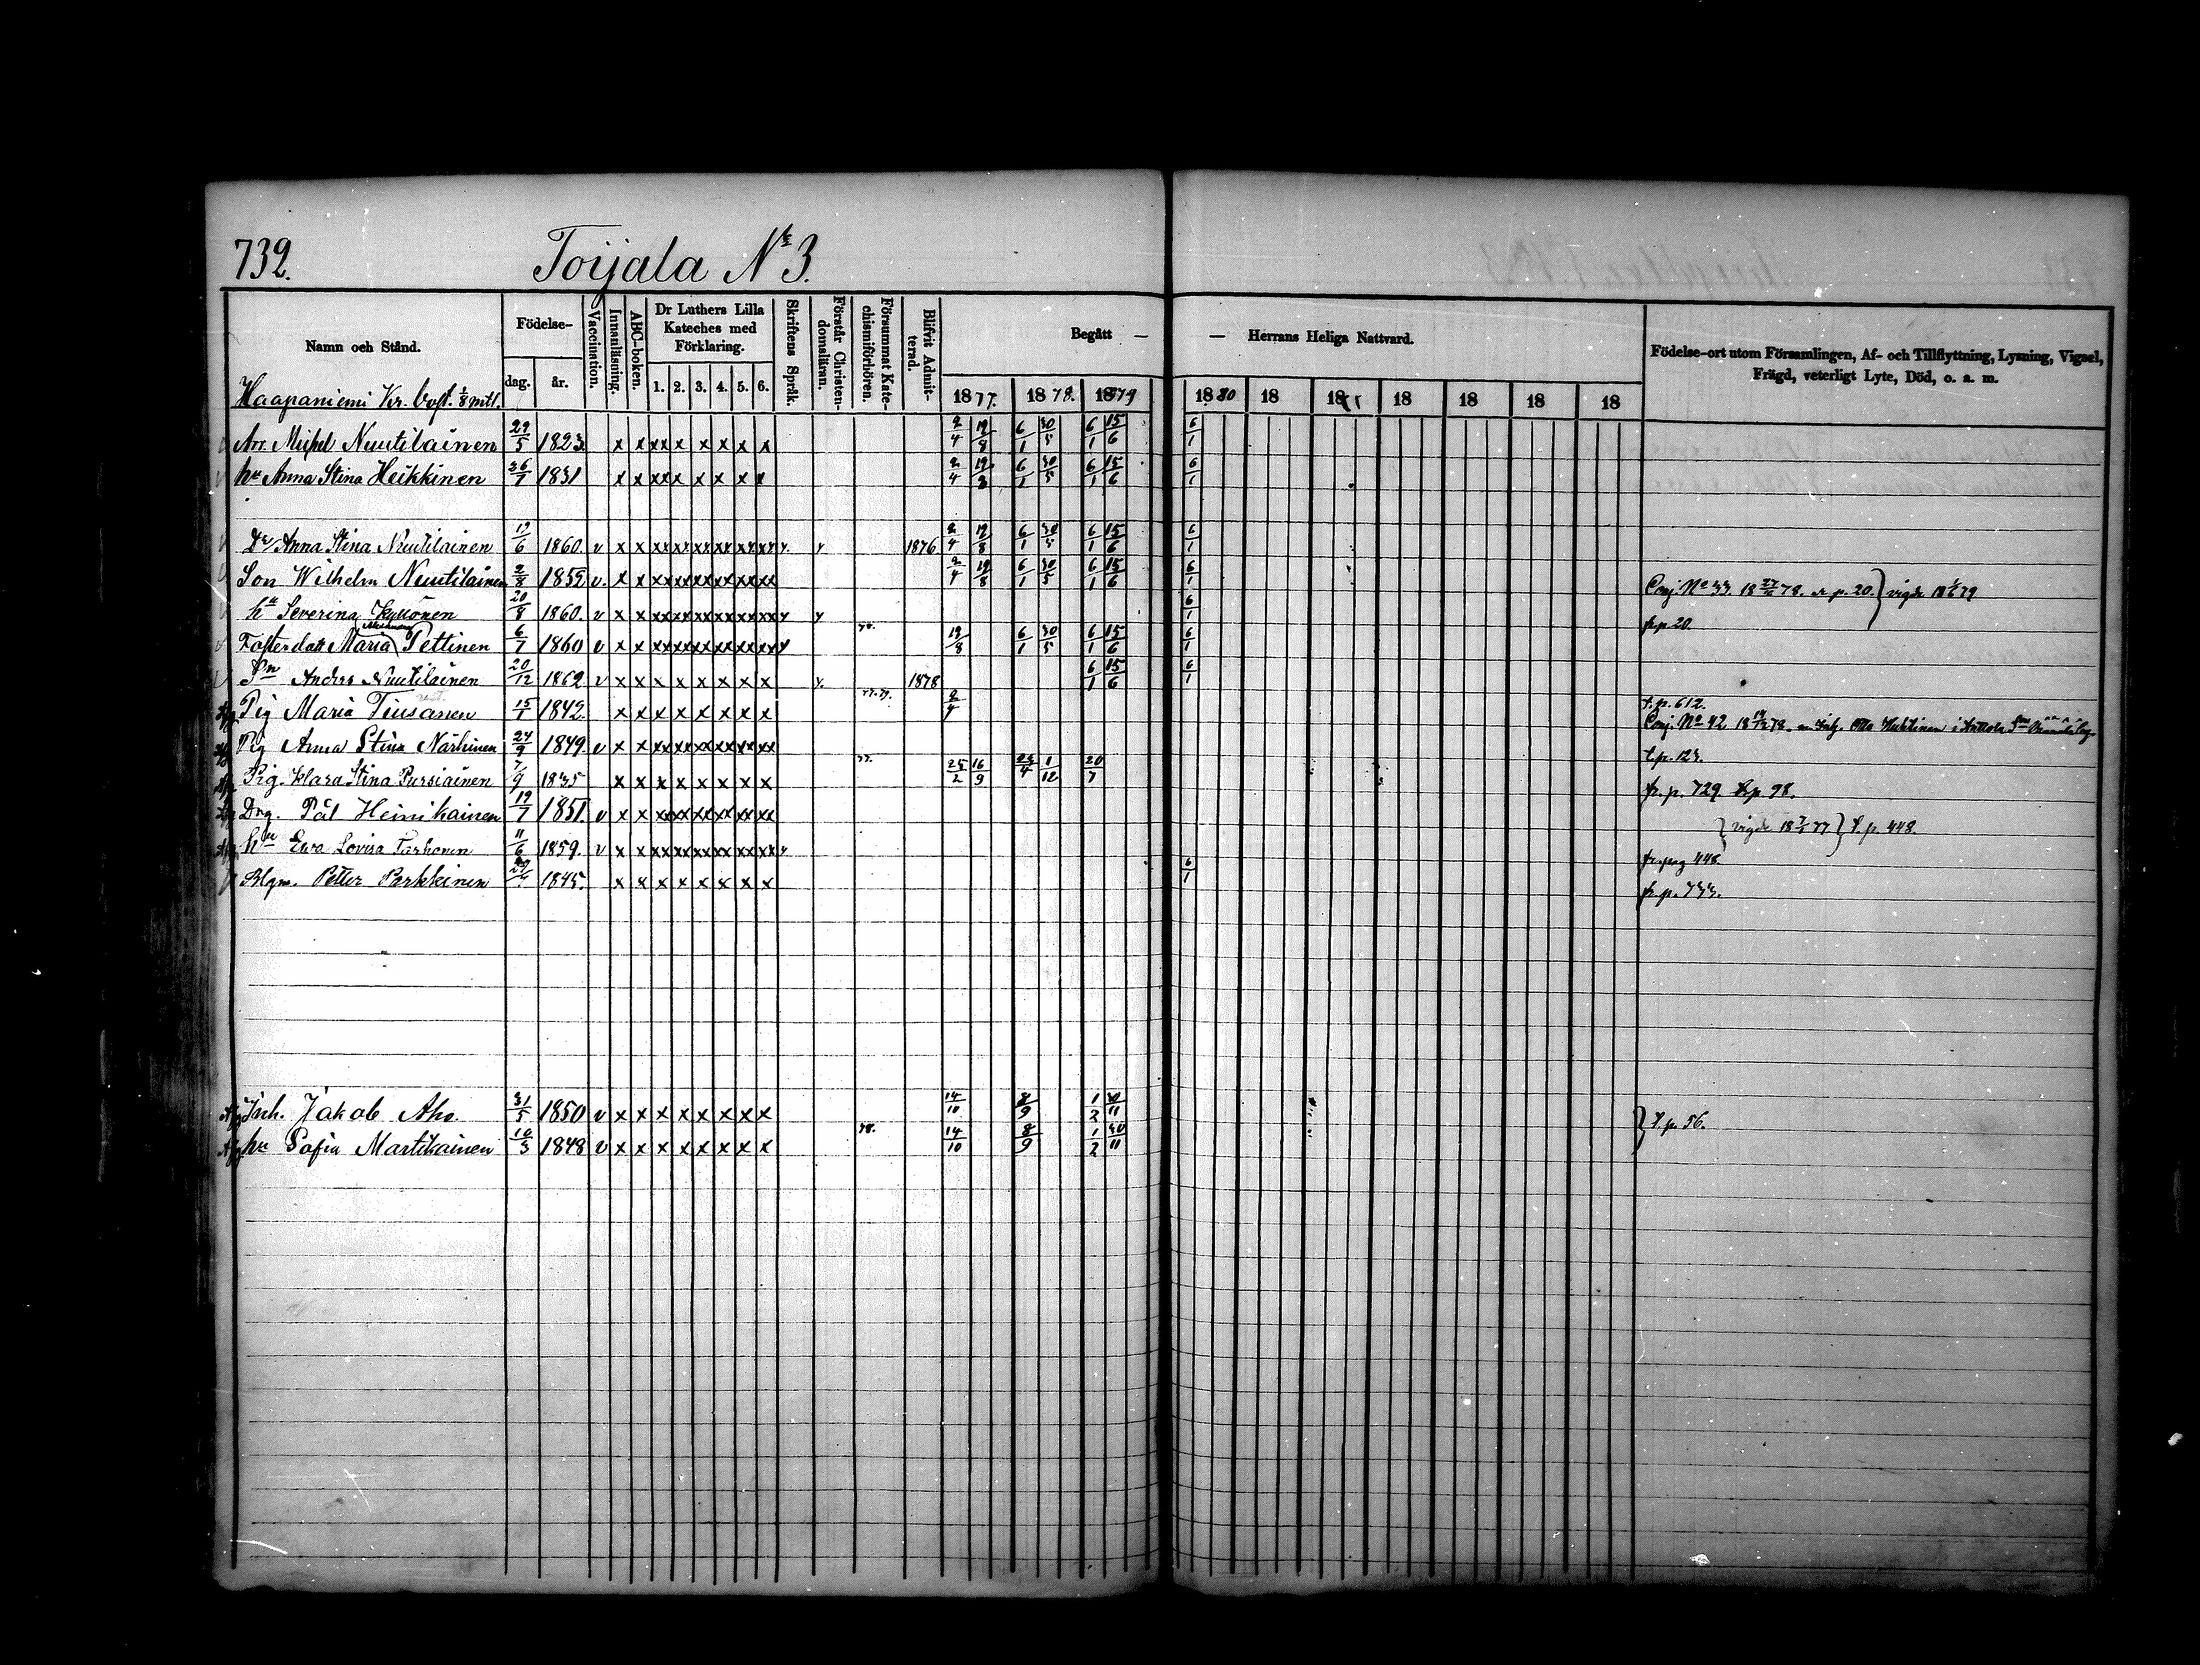 739. Toijala No 3.
Namn och Stånd. Födelse- dag. år. Vaccination. Innanläsning. ABC-boken. Dr Luthers Lilla Kateches med Förklaring. 1. 2. 3. 4. 5. 6. Skriftens Språk. Förstår Christendomsläran. Försummat Katechismiförhören. Blifvit Admitterad. Begått — — Herrans Heliga Nattvard. Födelse-ort utom Församlingen, Af- och Tillflyttning, Lysning, Vigsel, Frägd, veterligt Lyte, Död, o. a. m.
Haapaniemi Kr. 1/8 mtl. 1877. 1878. 1879 1880 18 18 18 18 18 18
Arr. Michel Nuutilainen 29/5 1823 x x xx x x x x x 2/4 19/8 6/1 30/5 6/1 15/6 6/1
hu Anna Stina Heikkinen 26/7 1831 x x xx x x x x x 2/4 19/8 6/1 30/5 6/1 15/6 6/1
Dr Anna Stina Nuutilainen 19/6 1860. v x x xx xx xx xx xx xx x. x 1876 2/4 19/8 6/1 30/5 6/1 15/6 6/1
Son Wilhelm Nuutilainen 2/8 1852 v. x x xx xx xx xx xx xx 2/4 19/8 6/1 30/5 6/1 15/6 6/1 Conj. No 33. 18 78. p. 20. } vigde 18 79
hu Severina Kyllönen 20/8 1860. v x x xx xx xx xx xx xx x x 6/1 fr. p. 20.
Fosterdott Maria Pettinen 6/7 1860 v x x xx xx xx xx xx xx x 78. 19/8 6/1 30/5 6/1 15/6 6/1
Sn Anders Nuutilainen 20/12 1862 v x x x x x x x x x. 1878 6/1 15/6 6/1
Pig Maria Tiusanen 15/1 1842. x x x x x x x x 77. 79. 2/4 t. p. 612.
Pig Anna Stina Närhinen 24/9 1849. v x x xx xx xx xx xx xx Conj. No 42 18 78. m Inh. Otto i Anttola t. p. 123.
Pig. Klara Stina Pursiainen 7/9 1835 x x x x x x x x 77. 25/2 16/9 23/4 1/12 20/7 fr. p. 729 t. p. 98.
Drg. Pål Heinikainen 19/7 1851. v x x xx xx xx xx xx xx } vigde 18 77 } t. p. 448.
hu Eva Lovisa Tarhonen 11/6 1859. v x x xx xx xx xx xx xx x fr. pag 448
Petter Parkkinen 1845. x x x x x x x x 6/1 fr. p. 733.
Inh. Jakob Aho 31/5 1850 v x x x x x x x x 14/10 8/9 1/2 30/11 } t. p. 56.
hu Sofia Martikainen 10/3 1848 v x x x x x x x x 78. 14/10 8/9 1/2 30/11